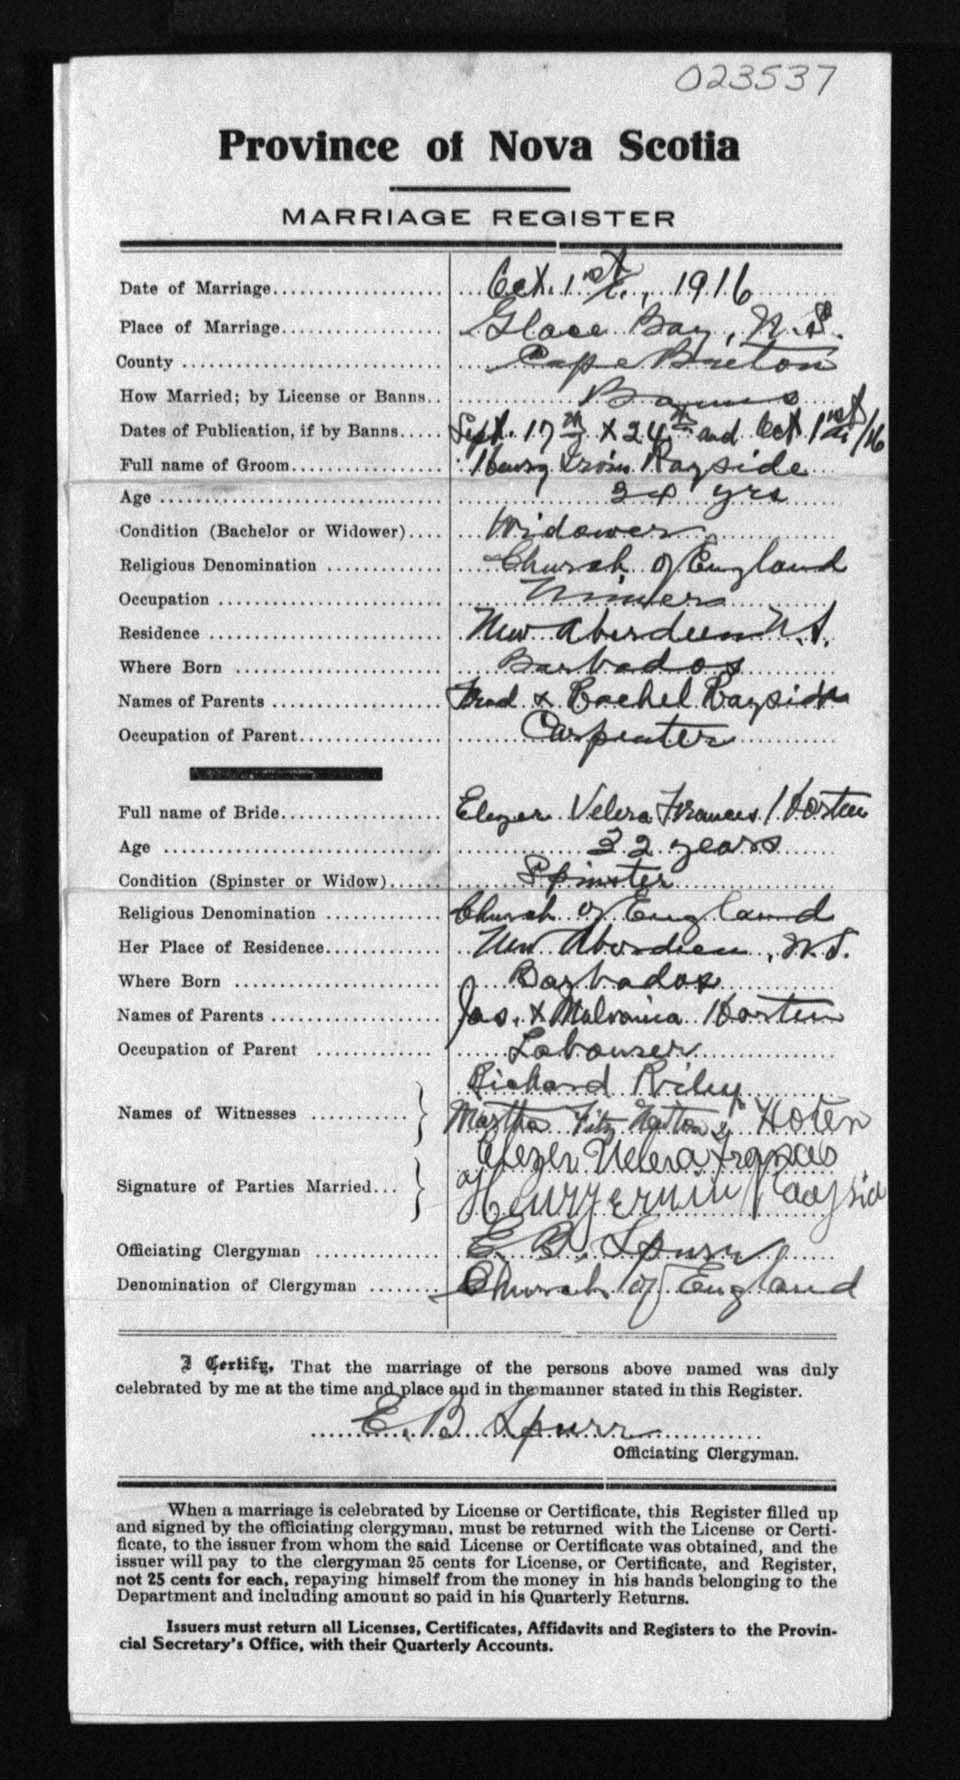 023537
Province of Nova Scotia
MARRIAGE REGISTER
Date of Marriage.................... Oct. 1st, 1916
Place of Marriage................... Glace Bay, N.S.
County .............................. Cape Breton
How Married; by License or Banns.. Banns
Dates of Publication, if by Banns..... Sept. 17th & 24th and Oct 1st/16
Full name of Groom................... Henry Rayside
Age ................................ 34 yrs
Condition (Bachelor or Widower).... Widower
Religious Denomination .............. Church of England
Occupation .......................... Miner
Residence ........................... New Aberdeen N.S.
Where Born ......................... Barbados
Names of Parents .................... & Rachel Rayside
Occupation of Parent................. Carpenter
Full name of Bride................... Elezer Velera Frances
Age ................................ 32 years
Condition (Spinster or Widow)...... Spinster
Religious Denomination .............. Church of England
Her Place of Residence............... New Aberdeen, N.S.
Where Born ......................... Barbados
Names of Parents .................... Jas. & Malvania
Occupation of Parent ................ Labourer
Richard Riley
Names of Witnesses ............ Martha Fitz
Elezer Velera Frances Hoten
Signature of Parties Married... Henry Ervin Rayside
Officiating Clergyman ............... E. B. Spurr
Denomination of Clergyman ........ Church of England
I Certify, That the marriage of the persons above named was duly
celebrated by me at the time and place and in the manner stated in this Register.
E. B. Spurr
Officiating Clergyman.
When a marriage is celebrated by License or Certificate, this Register filled up
and signed by the officiating clergyman, must be returned with the License or Certi-
ficate, to the issuer from whom the said License or Certificate was obtained, and the
issuer will pay to the clergyman 25 cents for License, or Certificate, and Register,
not 25 cents for each, repaying himself from the money in his hands belonging to the
Department and including amount so paid in his Quarterly Returns.
Issuers must return all Licenses, Certificates, Affidavits and Registers to the Provin-
cial Secretary's Office, with their Quarterly Accounts.